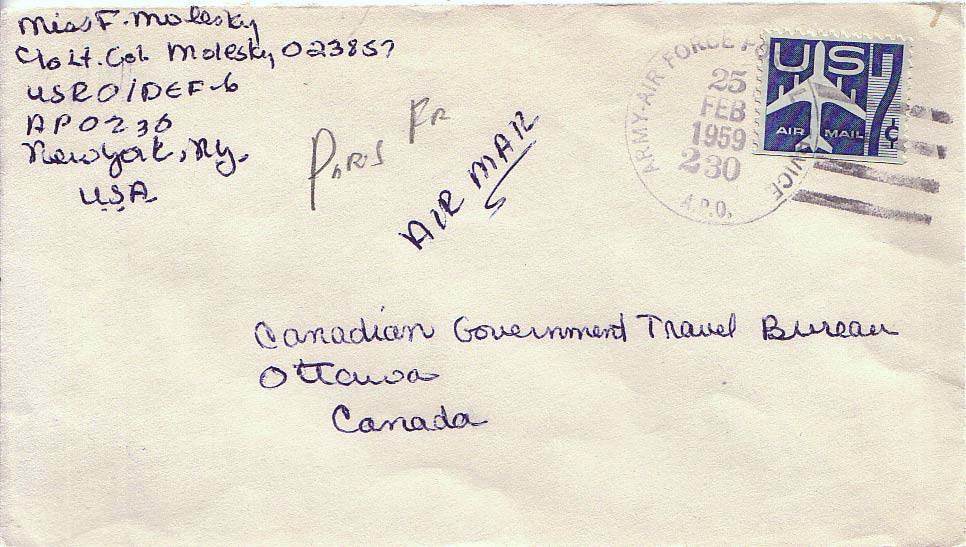 Miss F. Molesky
C/o Lt. Col. Molesky 023857
USRO/DEF-6
APO 230
New York, Ny.
USA
Paris Fr
AIR MAIL
ARMY-AIR FORCE PO VICE
25
FEB
1959
230
A.P.O.
US
7¢
AIR MAIL
Canadian Government Travel Bureau
Ottawa
Canada